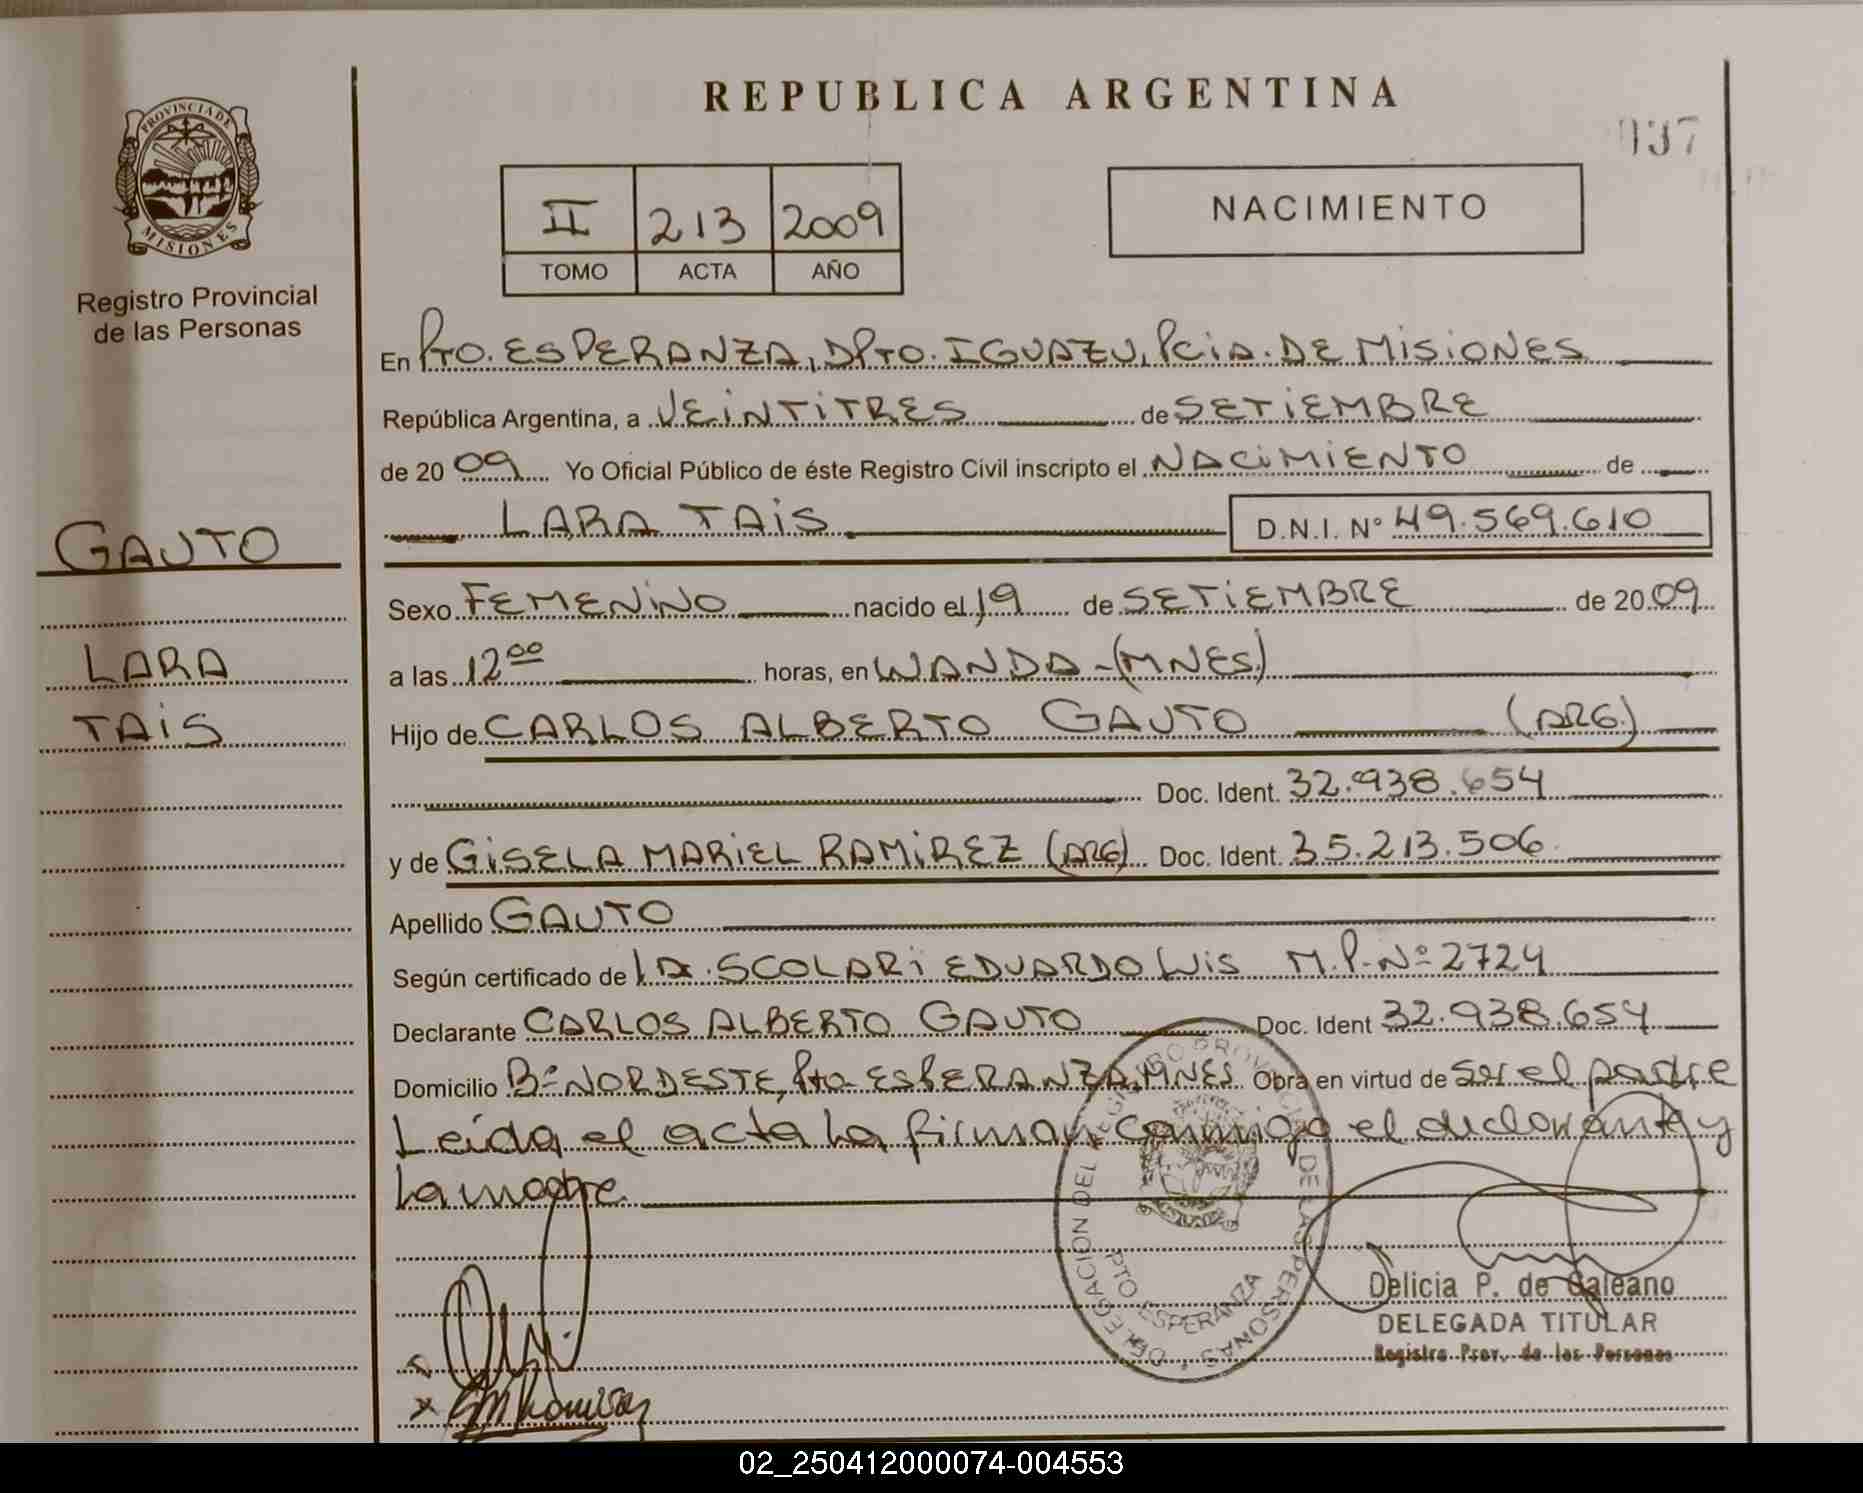 REPUBLICA ARGENTINA
037
PROVINCIA DE MISIONES
Registro Provincial
de las Personas
II 213 2009
TOMO ACTA AÑO
NACIMIENTO
En Pto. ESPERANZA, DPTO. IGUAZU, Pcia. DE MISIONES
República Argentina, a VEINTITRES de SETIEMBRE
de 2009 Yo Oficial Público de éste Registro Civil inscripto el NACIMIENTO de
LARA TAIS D.N.I. Nº 49.569.610
GAUTO
LARA
TAIS
Sexo FEMENINO nacido el 19 de SETIEMBRE de 2009
a las 12 00 horas, en WANDA-(MNES)
Hijo de CARLOS ALBERTO GAUTO (ARG.)
Doc. Ident. 32.938.654
y de GISELA MARIEL RAMIREZ (ARG) Doc. Ident. 35.213.506
Apellido GAUTO
Según certificado de SCOLARI EDUARDO LUIS M.P. Nº 2724
Declarante CARLOS ALBERTO GAUTO Doc. Ident 32.938.654
Domicilio Bº NORDESTE, Pto ESPERANZA, MNES Obra en virtud de ser el padre
Leída el acta la firman conmigo el declarante y
la madre
DELEGACION DEL REGISTRO PROVINCIAL DE LAS PERSONAS
PTO ESPERANZA
Delicia P. de Galeano
DELEGADA TITULAR
Registro Prov. de las Personas
02_250412000074-004553